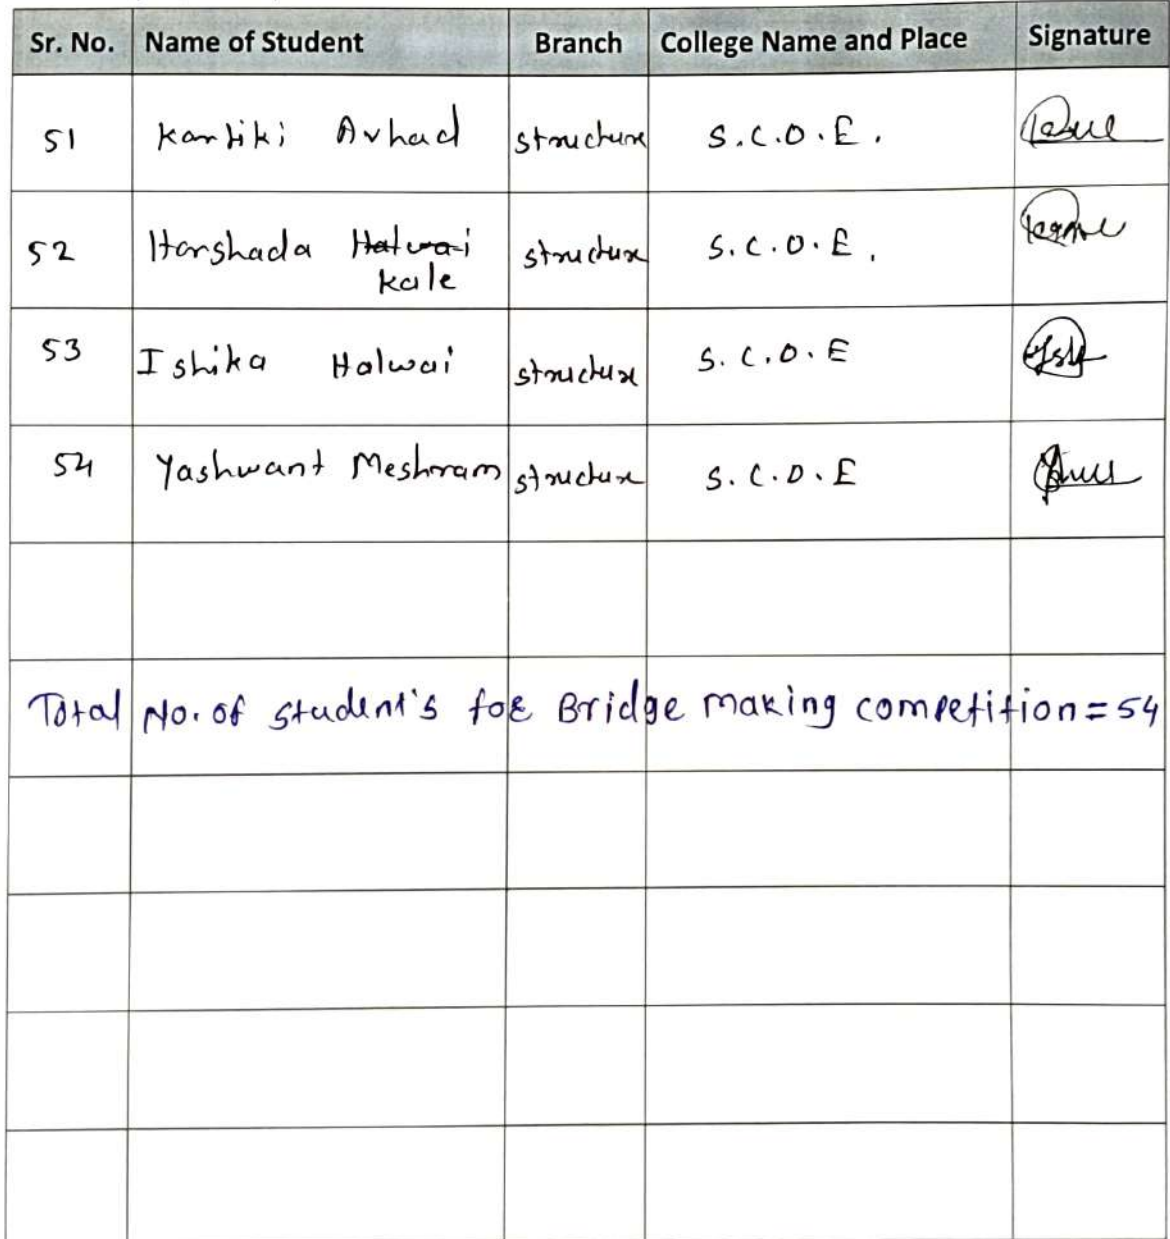 Sr. No. Name of Student Branch College Name and Place Signature
51 Kartiki Avhad structure S.C.O.E.
52 Harshada Halwai structure S.C.O.E.
Kale
53 Ishika Halwai structure S.C.O.E
54 Yashwant Meshram structure S.C.O.E
Total No. of student's for Bridge making competition = 54